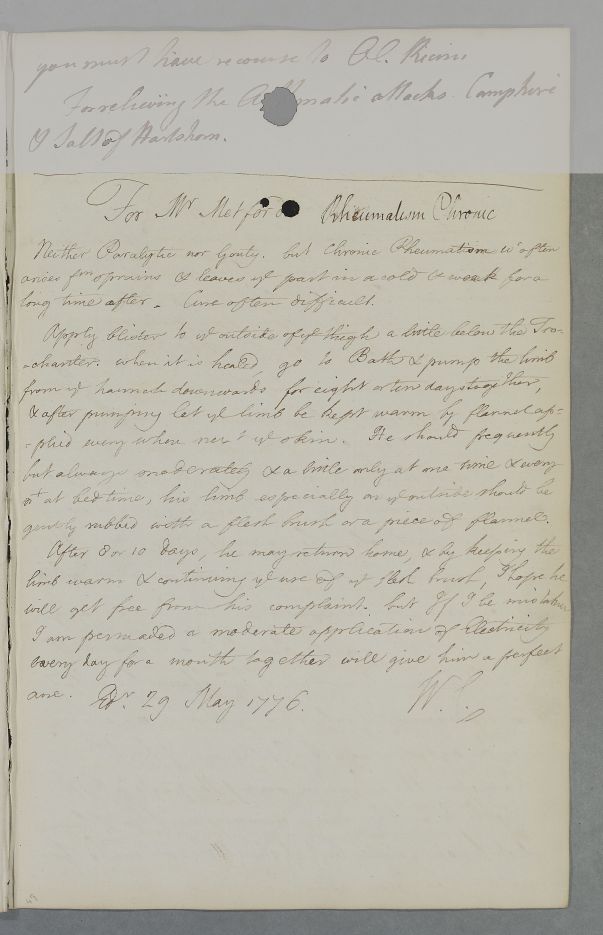 you must have recourse to Ol. Ricini
For relieving the Asthmatic attacks. Camphire
& Salt of Hartshorn.
For Mr Metford Rheumatism Chronic
Neither Paralytic nor Gouty. but Chronic Rheumatism wch often
arises fm sprains & leaves ye part in a cold & weak for a
long time after. Cure often difficult.
Apply blister to ye outside of ye thigh a little below the Tro-
-chanter. when it is healed, go to Bath & pump the limb
from ye haunch downwards for eight or ten days together,
& after pumping let ye limb be kept warm by flannel ap-
-plied every where next ye skin. He should frequently
but always moderately & a little only at one time & every
nt at bedtime, his limb especially on ye outside should be
gently rubbed with a flesh brush or a piece of flannel.
After 8 or 10 days, he may return home, & by keeping the
limb warm & continuing ye use of ye flesh brush, I hope he
will get free from his complaint. but If I be mistaken
I am persuaded a moderate application of Electricity
every day for a month together will give him a perfect
cure. Edr. 29 May 1776. W.
49